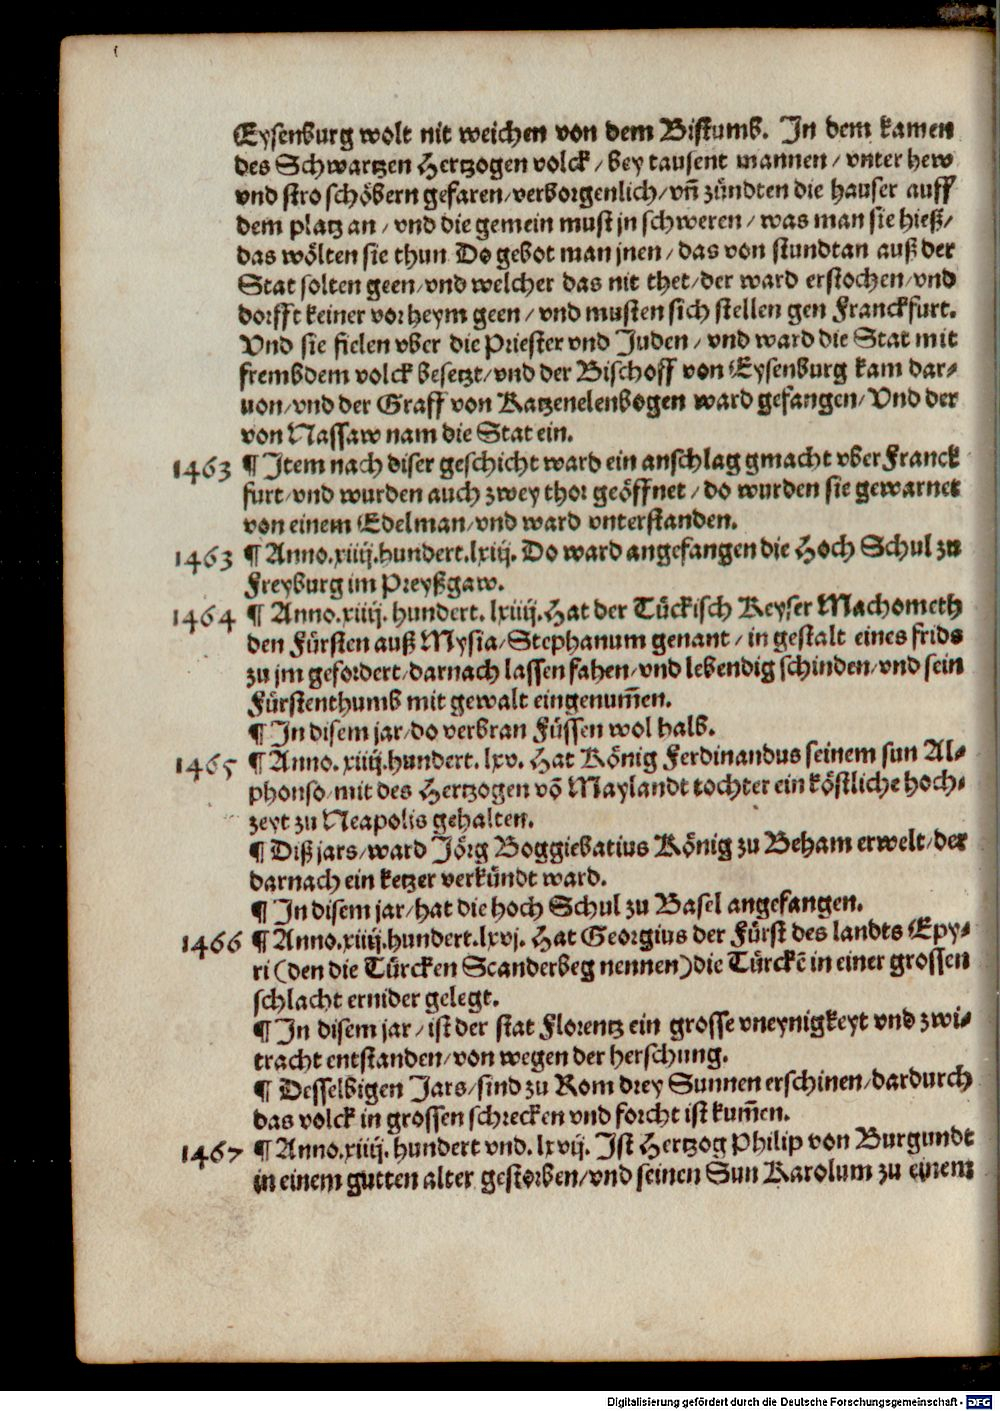 Eysenburg wolt nit weichen von dem Bistumb. In dem kamen
des Schwartzen Hertzogen volck / bey tausent mannen / vnter hew
vnd stro schöbern gefaren / verborgenlich / vn̄ zündten die hauser auff
dem platz an / vnd die gemein must jn schweren / was man sie hieß /
das wölten sie thun Do gebot man jnen / das von stundtan auß der
Stat solten geen / vnd welcher das nit thet / der ward erstochen / vnd
dorfft keiner vor heym geen / vnd musten sich stellen gen Franckfurt.
Vnd sie fielen vber die Priester vnd Juden / vnd ward die Stat mit
frembdem volck besetzt / vnd der Bischoff von Eysenburg kam dar⸗
uon / vnd der Graff von Katzenelenbogen ward gefangen / Vnd der
von Nassaw nam die Stat ein.
1463 ¶ Item nach diser geschicht ward ein anschlag gmacht vber Franck
furt / vnd wurden auch zwey thor geöffnet / do wurden sie gewarnet
von einem Edelman / vnd ward vnterstanden.
1463 ¶ Anno.xiiij.hundert.lxiij. Do ward angefangen die Hoch Schul zu
Freyburg im Preyßgaw.
1464 ¶ Anno.xiiij. hundert. lxiiij. Hat der Tückisch Keyser Machometh
den Fürsten auß Mysia / Stephanum genant / in gestalt eines frids
zu jm gefordert / darnach lassen fahen / vnd lebendig schinden / vnd sein
Fürstenthumb mit gewalt eingenum̄en.
¶ In disem jar / do verbran Füssen wol halb.
1465 ¶ Anno. xiiij.hundert. lxv. Hat König Ferdinandus seinem sun Al⸗
phonso / mit des Hertzogen vō Maylandt tochter ein köstliche hoch⸗
zeyt zu Neapolis gehalten.
¶ Diß jars / ward Jörg Boggiebatius König zu Beham erwelt / der
darnach ein ketzer verkündt ward.
¶ In disem jar / hat die hoch Schul zu Basel angefangen.
1466 ¶ Anno.xiiij.hundert.lxvj. Hat Georgius der Fürst des landts Epy⸗
ri (den die Türcken Scanderbeg nennen) die Türckē in einer grossen
schlacht ernider gelegt.
¶ In disem jar / ist der stat Florentz ein grosse vneynigkeyt vnd zwi⸗
tracht entstanden / von wegen der herschung.
¶ Desselbigen Jars / sind zu Rom drey Sunnen erschinen / dardurch
das volck in grossen schrecken vnd forcht ist kum̄en.
1467 ¶ Anno.xiiij. hundert vnd. lxvij. Ist Hertzog Philip von Burgundt
in einem gutten alter gestorben / vnd seinen Sun Karolum zu einem
Digitalisierung gefördert durch die Deutsche Forschungsgemeinschaft - DFG